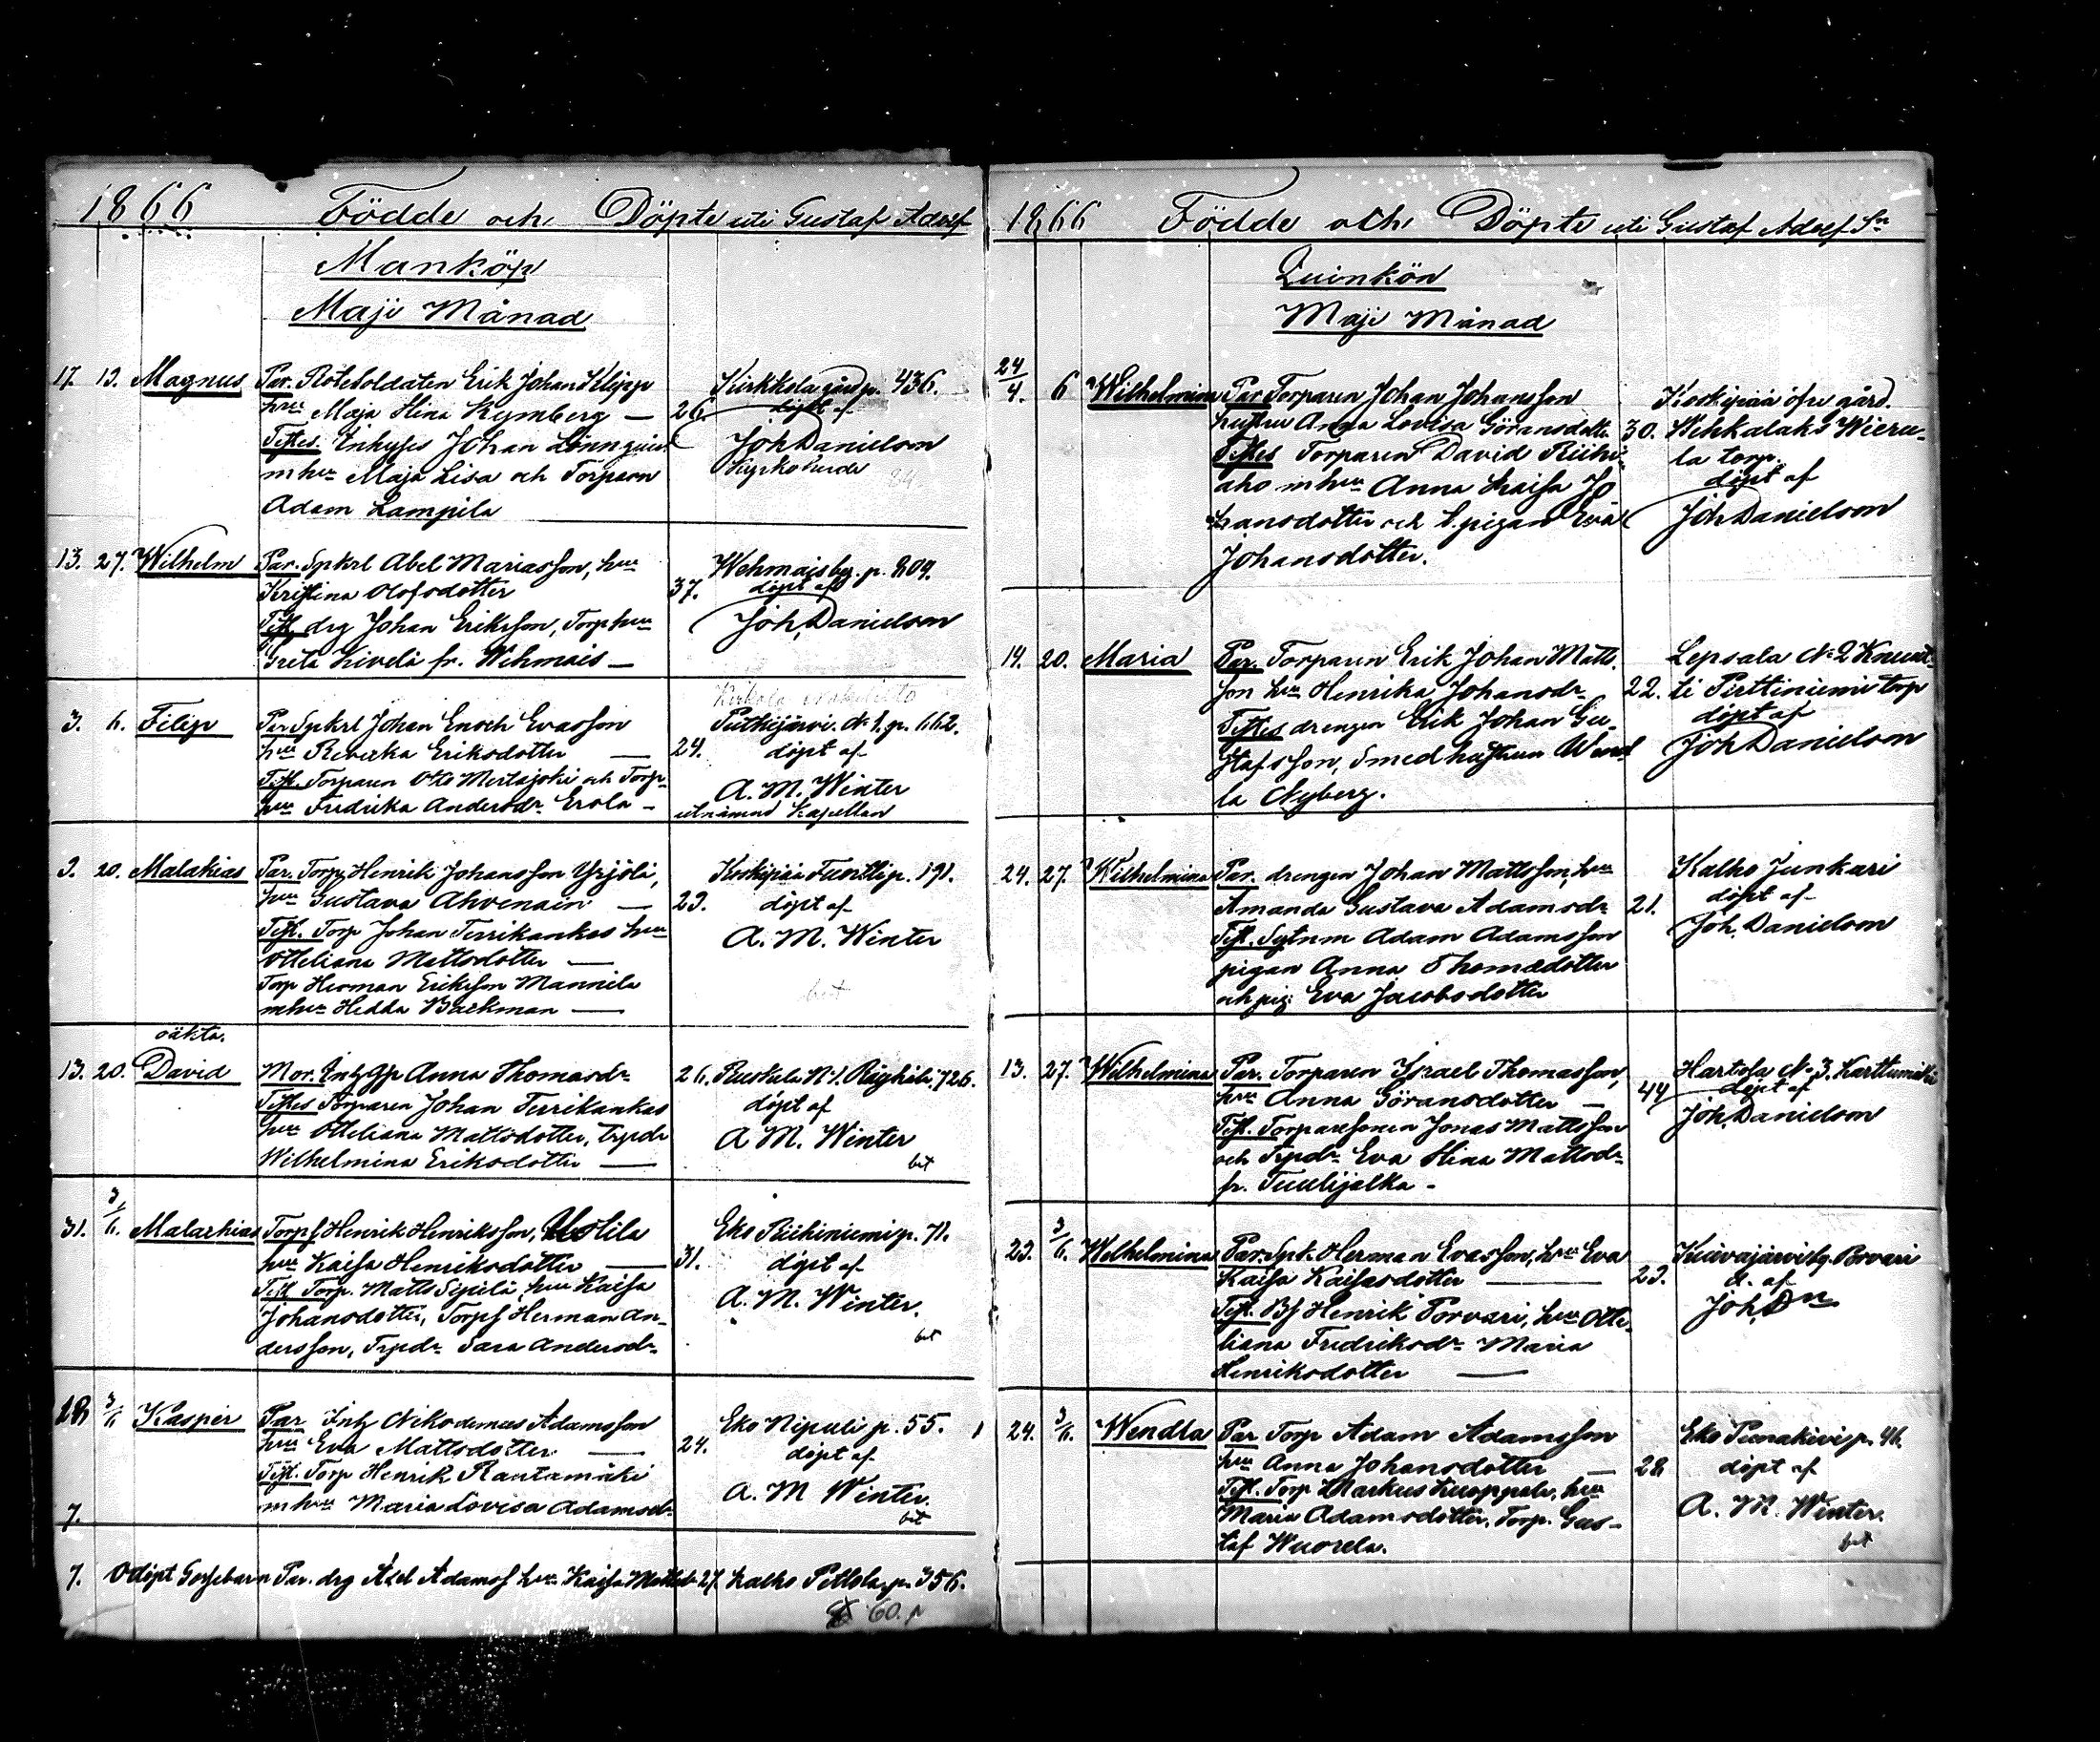 1866 Födde och Döpte uti Gustaf Adolf
Mankön
Maji Månad
17. 19. Magnus Par. Rotesoldaten Erik Johan Klipp
hru Maja Stina Rymberg — 26.
Testes. Inhyses Johan Lönnqvist
m hru Maja Lisa och Torparn
Adam Lampila
Kirkkola gård p. 436.
döpt af
Joh Danielson
Kyrkoherde
84
13. 27. Wilhelm Par. Spkrl Abel Mariasson, hru
Kristina Olofsdotter 37.
Test. drg Johan Eriksson, Torp hru
Greta Kivelä fr. Wehmais —
Wehmais by. p. 809.
döpt af
Joh, Danielson
3. 6. Filip Par Spkrl Johan Enoch Evasson
hru Rebecka Eriksdotter — 24.
Test. Torparen Otto Mertajoki och Torp-
hru Fredrika Andersdr Erola —
Kirkola
Putkijärvi. N 1. p. 662.
döpt af
A. M. Winter
utnämnd Kapellan
3. 20. Malakias Par. Torp Henrik Johansson Yrjölä,
hru Gustava Ahvenain — 23.
Test. Torp Johan Terrikankas hru
Otteliana Mattsdotter —
Torp Herman Eriksson Mannila
m hru Hedda Backman —
Koskipää Tuortti p. 191.
döpt af
A. M. Winter
bet
oäkta.
13. 20. David Mor. Inh gp Anna Thomasdr 26.
Testes Torparen Johan Terrikankas
hru Otteliana Mattsdotter, trpdr
Wilhelmina Eriksdotter —
Ruskala N 1. 726.
döpt af
A M. Winter
bet
31. 3/6. Malachias Torps Henrik Henriksson, Ustila
hru Kaisa Henriksdotter — 31.
Test Torp. Matts Sipilä, hru Kaisa
Johansdotter, Torps Herman An-
dersson, Trpdr Sara Andersdr
Eko Riihiniemi p. 71.
döpt af
A. M. Winter.
bet
28 3/6 Kasper Par Inh Nikodemus Adamsson
hru Eva Mattsdotter — 24.
Test. Torp Henrik Rautamäki
m hru Maria Lovisa Adamsdr
Eko Nipuli p. 55.
döpt af
A. M Winter.
bet
7.
7. Odöpt Gossebarn Par. drg Axel Adamss hru Kaisa Mattsdr 27. Kalho Pettola p. 356.
60.
1866 Födde och Döpte uti Gustaf Adolf Sn
Quinkön
Maji Månad
24/4. 6 Wilhelmina Par Torparen Johan Johansson
hustru Anna Lovisa Göransdotter 30.
Testes Torparen David Riihi-
aho m hru Anna Kaisa Jo
hansdotter och t. pigan Eva
Johansdotter.
Koskipää öfre gård.
Wihkalaks Wieru-
la torp.
döpt af
Joh Danielson
19. 20. Maria Par. Torparen Erik Johan Matts
son hru Henrika Johansdr 22.
Testes drengen Erik Johan Gu-
stafsson, Smed hustrun Wend
la Nyberg.
Lepsala N 2
Perttiniemi torp
döpt af
Joh Danielson
24. 27. Wilhelmina Par. drengen Johan Mattsson, hru
Amanda Gustava Adamsdr 21.
Test. Sytnm Adam Adamsson
pigan Anna Thomædotter
och pig. Eva Jacobsdotter
Kalho Junkari
döpt af
Joh. Danielson
13. 27. Wilhelmina Par. Torparen Israel Thomasson,
hru Anna Göransdotter — 44
Test. Torparesonen Jonas Mattsson
och Trpdr Eva Stina Mattsdr
fr. Tuulijalka —
Hartola N 3. Karttumäki
döpt af
Joh, Danielson
23. 3/6. Wilhelmina Par. Spk. Herman Evasson, hru Eva
Kaisa Kaisasdotter — 23.
Test. Bs Henrik Porvari, hru Otte-
liana Fredriksdr Maria
Henriksdotter —
Kuivajärvi by. Porvari
d. af
Joh, Dn
24. 3/6. Wendla Par Torp Adam Adamsson
hru Anna Johansdotter — 28
Test. Torp Markus Kuoppala, hru
Maria Adamsdotter. Torp. Gus-
taf Wuorela.
Eko Punakivi p. 46.
döpt af
A. M. Winter.
bet